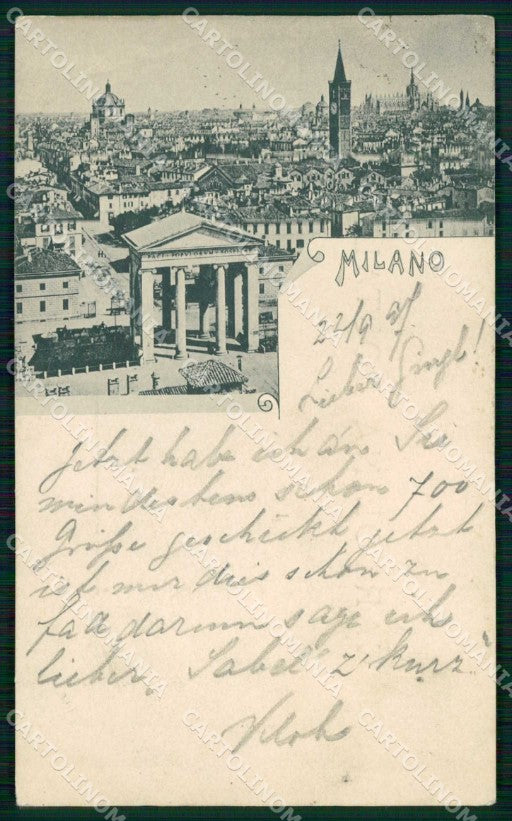 MILANO
22/9 97
Lieber Gingl!
Jetzt habe ich an Sie
mindestens schon 700
Grüße geschickt jetzt
ist mir dies schon zu
fad darum sage ich
lieber, Sabel z'kurz
CARTOLINOMANIA